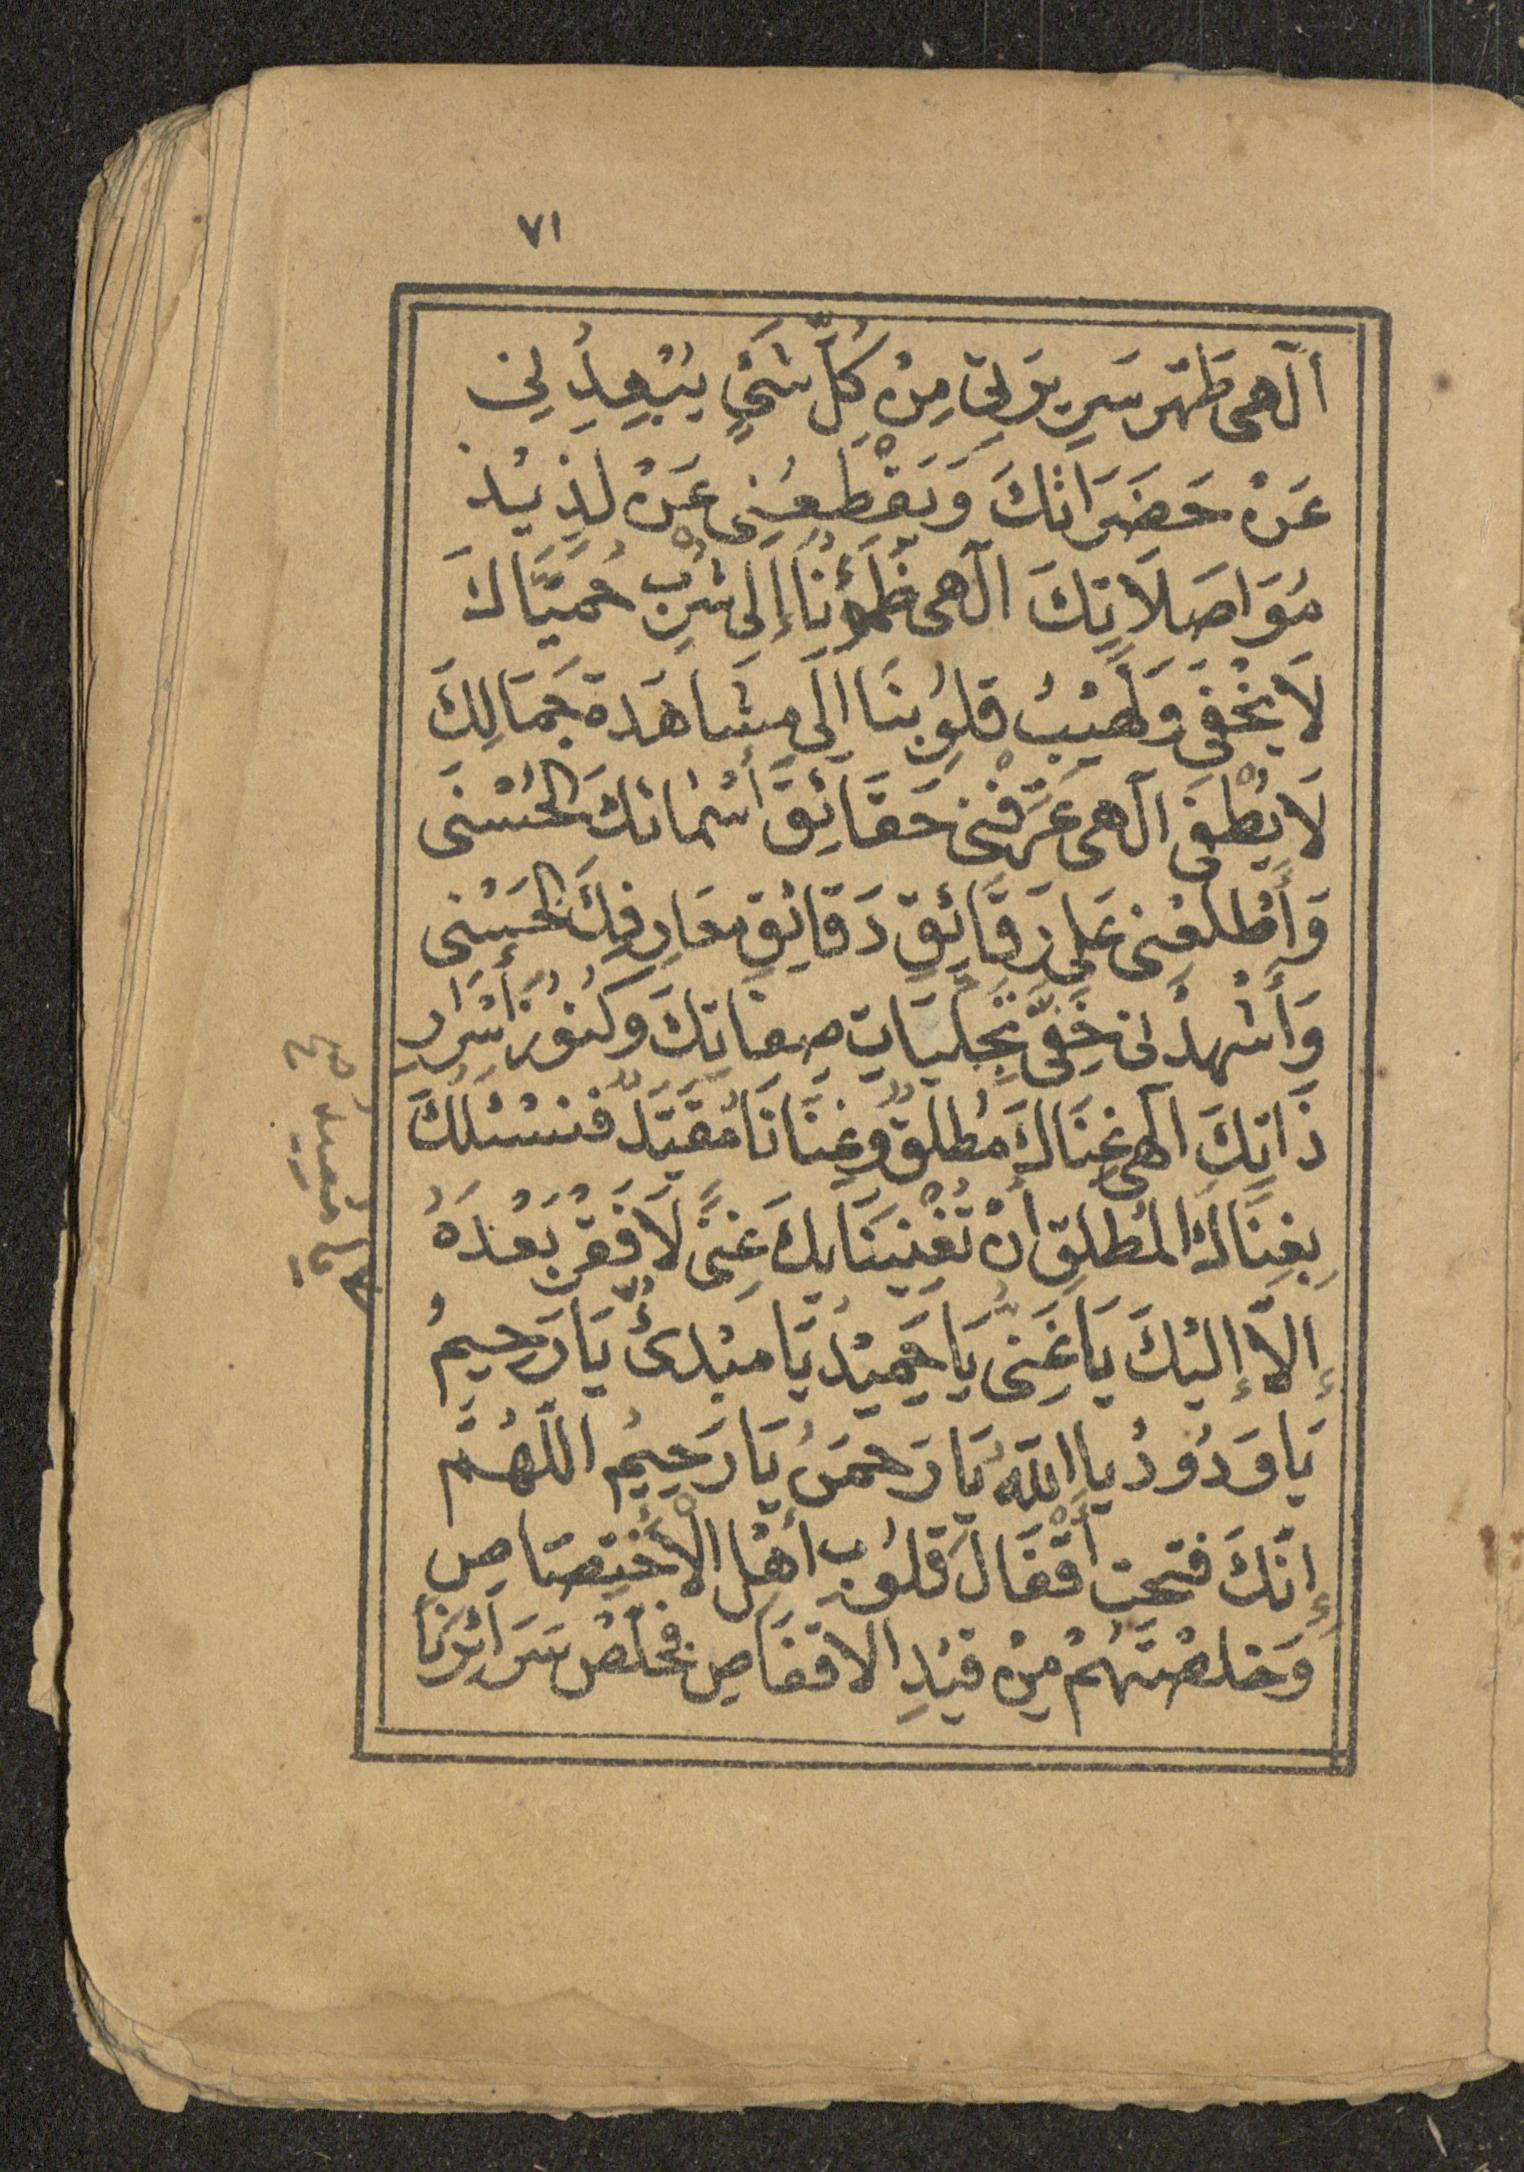 ٧١
آلٰهى طَهّر سَرِيرَتِى مِنْ كُلِّ شَئٍ يُبْعِدُنِى
عَنْ حَضَرَاتِكَ وَيَقْطَعُنِى عَنْ لَذِيْذِ
مُوَاصَلَاتِكَ آلٰهى ظَمَؤُنَا إِلَى شُرْبِ حُمَيَّاكَ
لَا يَخْفَى وَلَهِيْبُ قلُوبِنَا اِلَى مشَاهَدَةِ جَمَالِكَ
لَا يُطْفَى آلٰهى عَرِّفْنِى حَقَائِقَ أَسْمَائكَ الحُسْنَى
وَأَطْلِعْنِى عَلَى رَقَائِقِ دَقَائِقِ مَعَارِفِكَ الحَسْنى
وَأَشْهِدْنِى خَفِىَّ تَجَلِّيَاتِ صِفَاتِكَ وَكنُوزَ أَسْرَارِ
ذَاتِكَ آلٰهى غِنَاكَ مُطْلَقٌ وَغِنَانَا مُقَيَّدٌ فنسْئَلُكَ
بِغِنَاكَ المُطْلَقِ أنْ تُغْنِيَنَا بِكَ غِنًى لَا فَقْرَ بَعْدَهُ
إِلّا إِليْكَ يَا غَنِىُّ يَا حَمِيْدُ يَا مبْدِئُ يَا رَحِيمُ
يَا وَدُوْدُ يا اللهُ يَا رَحمَنُ يَا رَحِيمُ اللّهُمَّ
إِنَّكَ فتَحْتَ أَقْفَالَ قُلُوبِ أهْلِ الأخْتِصَاصِ
وَخَلصْتَهُمْ مِنْ قَيْدِ الاقفَاصِ فخَلّصْ سَرَائِرَنَا